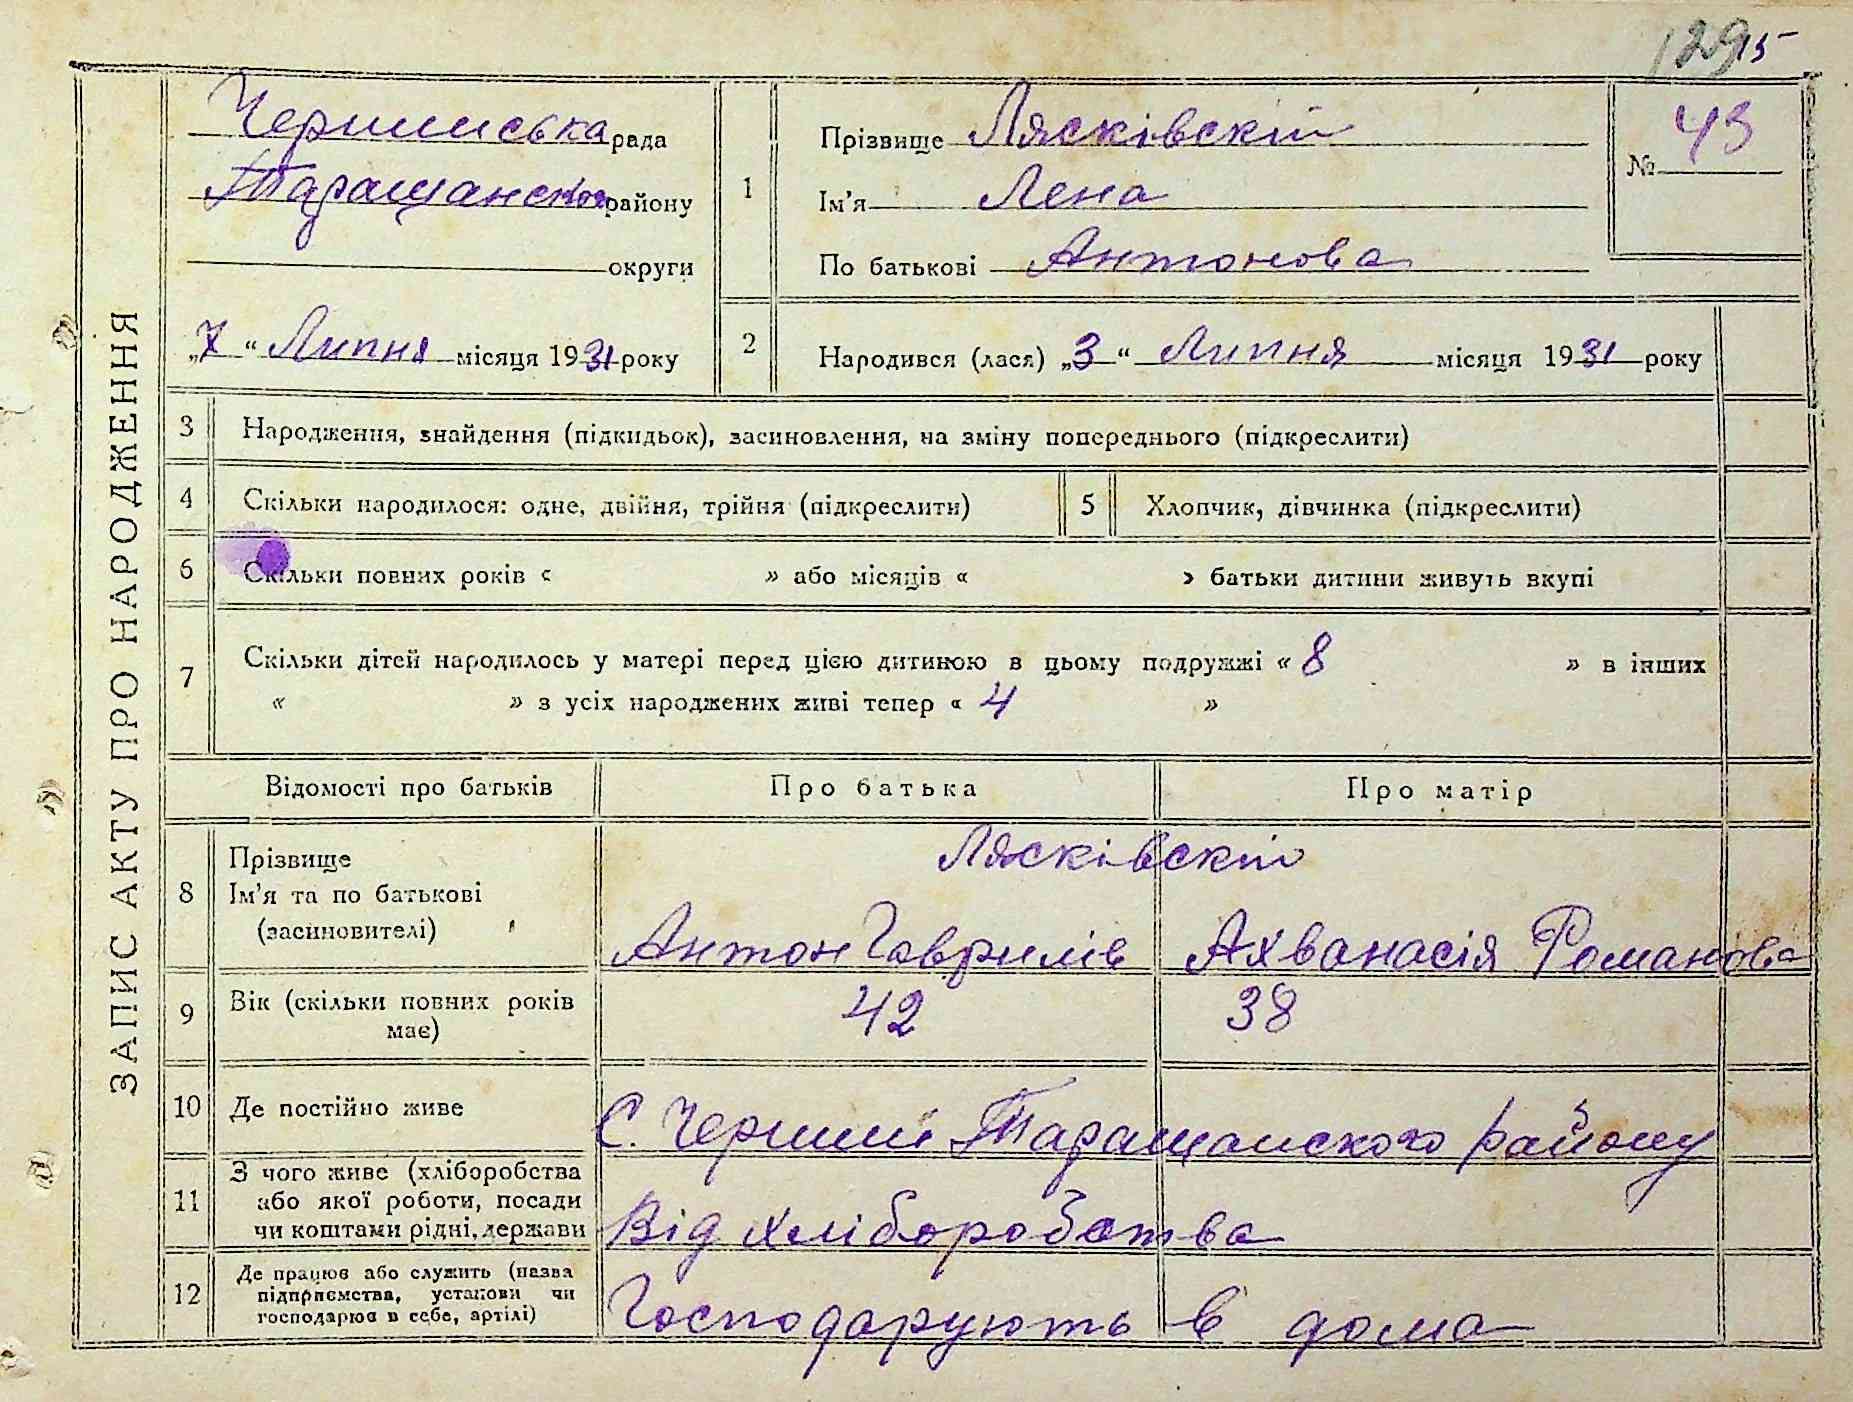 129 15
ЗАПИС АКТУ ПРО НАРОДЖЕННЯ
Черминська рада
Таращанского району
округи
„7“ Липня місяця 1931 року
1
Прізвище Лясківскій
Ім'я Лена
По батькові Антонова
№ 43
2
Народився (лася) „3“ Липня місяця 1931 року
3 Народження, знайдення (підкидьок), засиновлення, на зміну попереднього (підкреслити)
4 Скільки народилося: одне, двійня, трійня (підкреслити) 5 Хлопчик, дівчинка (підкреслити)
6 Скільки повних років « » або місяців « » батьки дитини живуть вкупі
7 Скільки дітей народилось у матері перед цією дитиною в цьому подружжі « 8 » в інших
« » з усіх народжених живі тепер « 4 »
Відомості про батьків Про батька Про матір
8 Прізвище
Ім'я та по батькові
(засиновителі)
Лясківскій
Антон Гаврилів Ахванасія Романова
9 Вік (скільки повних років
має)
42 38
10 Де постійно живе С. Чермин Таращанского району
11 З чого живе (хліборобства
або якої роботи, посади
чи коштами рідні, держави
Від хліборобства
12 Де працює або служить (назва
підприємства, установи чи
господарює в себе, артілі)
Господарують в дома